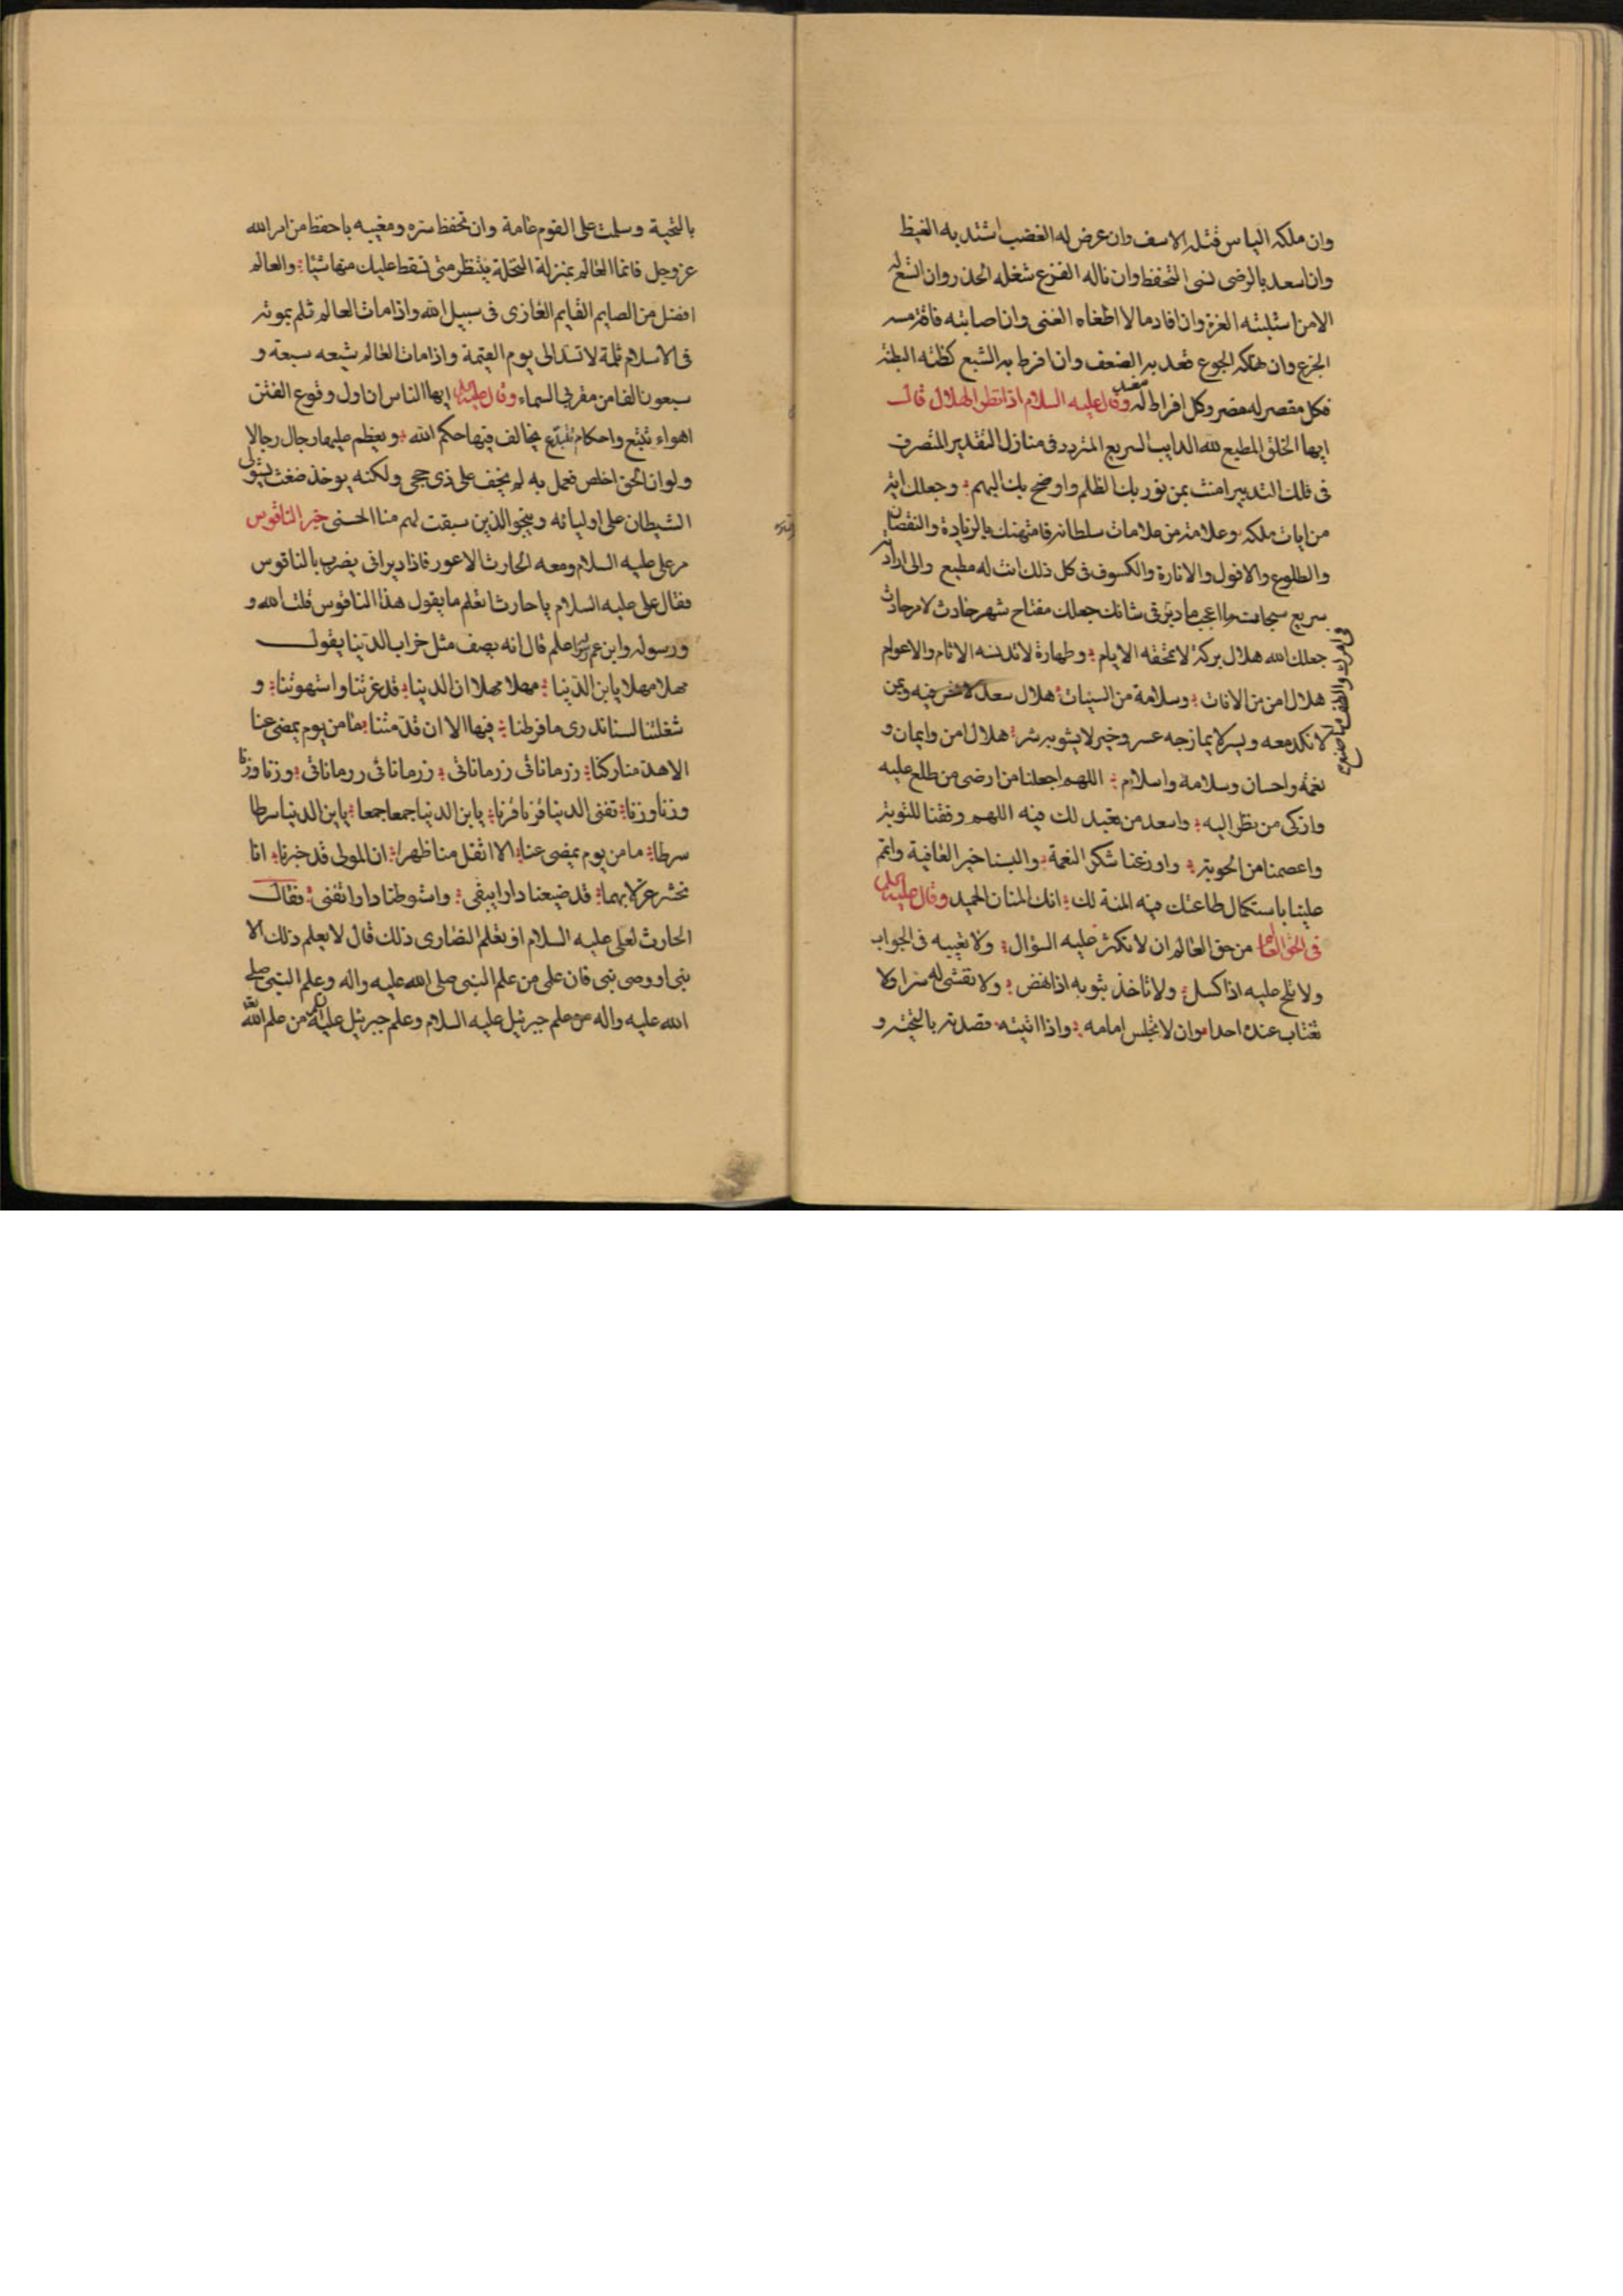 وان ملكه الياس قتله الاسف وان عرض له الغضب اشتد به الغيظ
وان اسعد بالرضى نسى التحفظ وان ناله الفزع شغله الحذر وان اتسع له
الامن استلبته الغرة وان افاد مالا اطغاه الغنى وان اصابته فاقة مسه
الجزع وان نهكه الجوع قعد به الضعف وان افرط به الشبع كظته البطنة
فكل مقصر له مضر وكل افراط له مفسد وقال عليه السلام اذا نظر الهلال قال
ايها الخلق المطيع لله الدايب السريع المتردد فى منازل التقدير المتصرف
فى فلك التدبير امنت بمن نور بك الظلم واوضح بك البهم وجعلك اية
من ايات ملكه وعلامة من علامات سلطانه فامتهنك بالزيادة والنقصان
والطلوع والافول والانارة والكسوف فى كل ذلك انت له مطيع والى ارادته
سريع سبحانه ما اعجب ما دبر فى شانك جعلك مفتاح شهر حادث لامر حادث
جعلك الله هلال بركة لا تمحقه الايام وطهارة لا تدنسه الاثام والاعوام
هلال امن من الافات وسلامة من السيئات هلال سعد لا نحس فيه ويمن
لا نكد معه ويسر لا يمازجه عسر وخير لا يشوبه شر هلال امن وايمان و
نعمة واحسان وسلامة واسلام اللهم اجعلنا من ارضى من طلع عليه
وازكى من نظر اليه واسعد من تعبد لك فيه اللهم وفقنا للتوبة
واعصمنا من الحوبة واوزعنا شكر النعمة والبسنا خير العافية واتمم
علينا باستكمال طاعتك فيه المنة لك انك المنان الحميد وقال عليه السلام
فى الحق العالم من حق العالم ان لا تكثر عليه السؤال ولا تعييه فى الجواب
ولا تلح عليه اذا كسل ولا تاخذ بثوبه اذا نهض ولا تفشى له سرا ولا
تغتاب عنده احدا وان لا تجلس امامه واذا اتيته قصدته بالتحية و
فى امرك والطف ما صنع
بالتحية وسلمت على القوم عامة وان تحفظ سره ومغيبه ما حفظ من امر الله
عز وجل فانما العالم بمنزلة النخلة ينتظر متى تسقط عليك منها شيئا والعالم
افضل من الصايم القايم الغازى فى سبيل الله واذا مات العالم ثلم بموته
فى الاسلام ثلمة لا تسد الى يوم القيمة واذا مات العالم شيعه سبعة و
سبعون الفا من مقربى السماء وقال عليه السلام ايها الناس ان اول وقوع الفتن
اهواء تتبع واحكام تبتدع يخالف فيها حكم الله ويعظم عليها رجال رجالا
ولو ان الحق اخلص فعمل به لم يخف على ذى حجى ولكنه يوخذ ضغث يستولى
الشيطان على اوليائه وينجو الذين سبقت لهم منا الحسنى خبر الناقوس
مر على عليه السلام ومعه الحارث الاعور فاذا ديرانى يضرب بالناقوس
فقال على عليه السلام يا حارث اتعلم ما يقول هذا الناقوس قلت الله و
ورسوله وابن عم رسوله اعلم قال انه يصف مثل خراب الدنيا يقول
مهلا مهلا يابن الدنيا مهلا مهلا ان الدنيا قد غرتنا واستهوتنا و
شغلتنا لسنا ندرى ما فرطنا فيها الا ان قد متنا ما من يوم يمضى عنا
الا هد منا ركنا زرمانانى زرمانانى زرمانانى زرمانانى وزنا وزنا
وزنا وزنا تفنى الدنيا قرنا قرنا يابن الدنيا جمعا جمعا يابن الدنيا سرطا
سرطا ما من يوم يمضى عنا الا اثقل منا ظهرا ان المولى قد خبرنا انا
نحشر غرلا بهما قد ضيعنا دارا يبقى واستوطنا دارا تفنى فقال
الحارث لعلى عليه السلام او تعلم النصارى ذلك قال لا يعلم ذلك الا
نبى او وصى نبى فان على من علم النبى صلى الله عليه واله وعلم النبى صلى
الله عليه واله من علم جبرئيل عليه السلام وعلم جبرئيل عليه السلام من علم الله تعالى